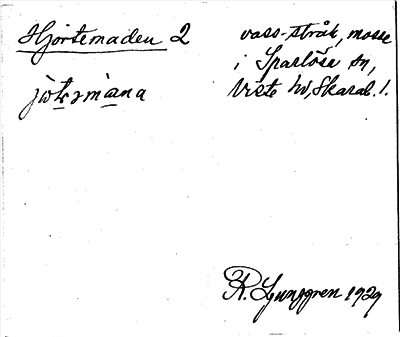 Hjortemaden 2
jòtərmàna
vass-stråk, mosse
i Sparlösa sn,
Viste hd, Skarab. l.
R. Ljunggren 1929